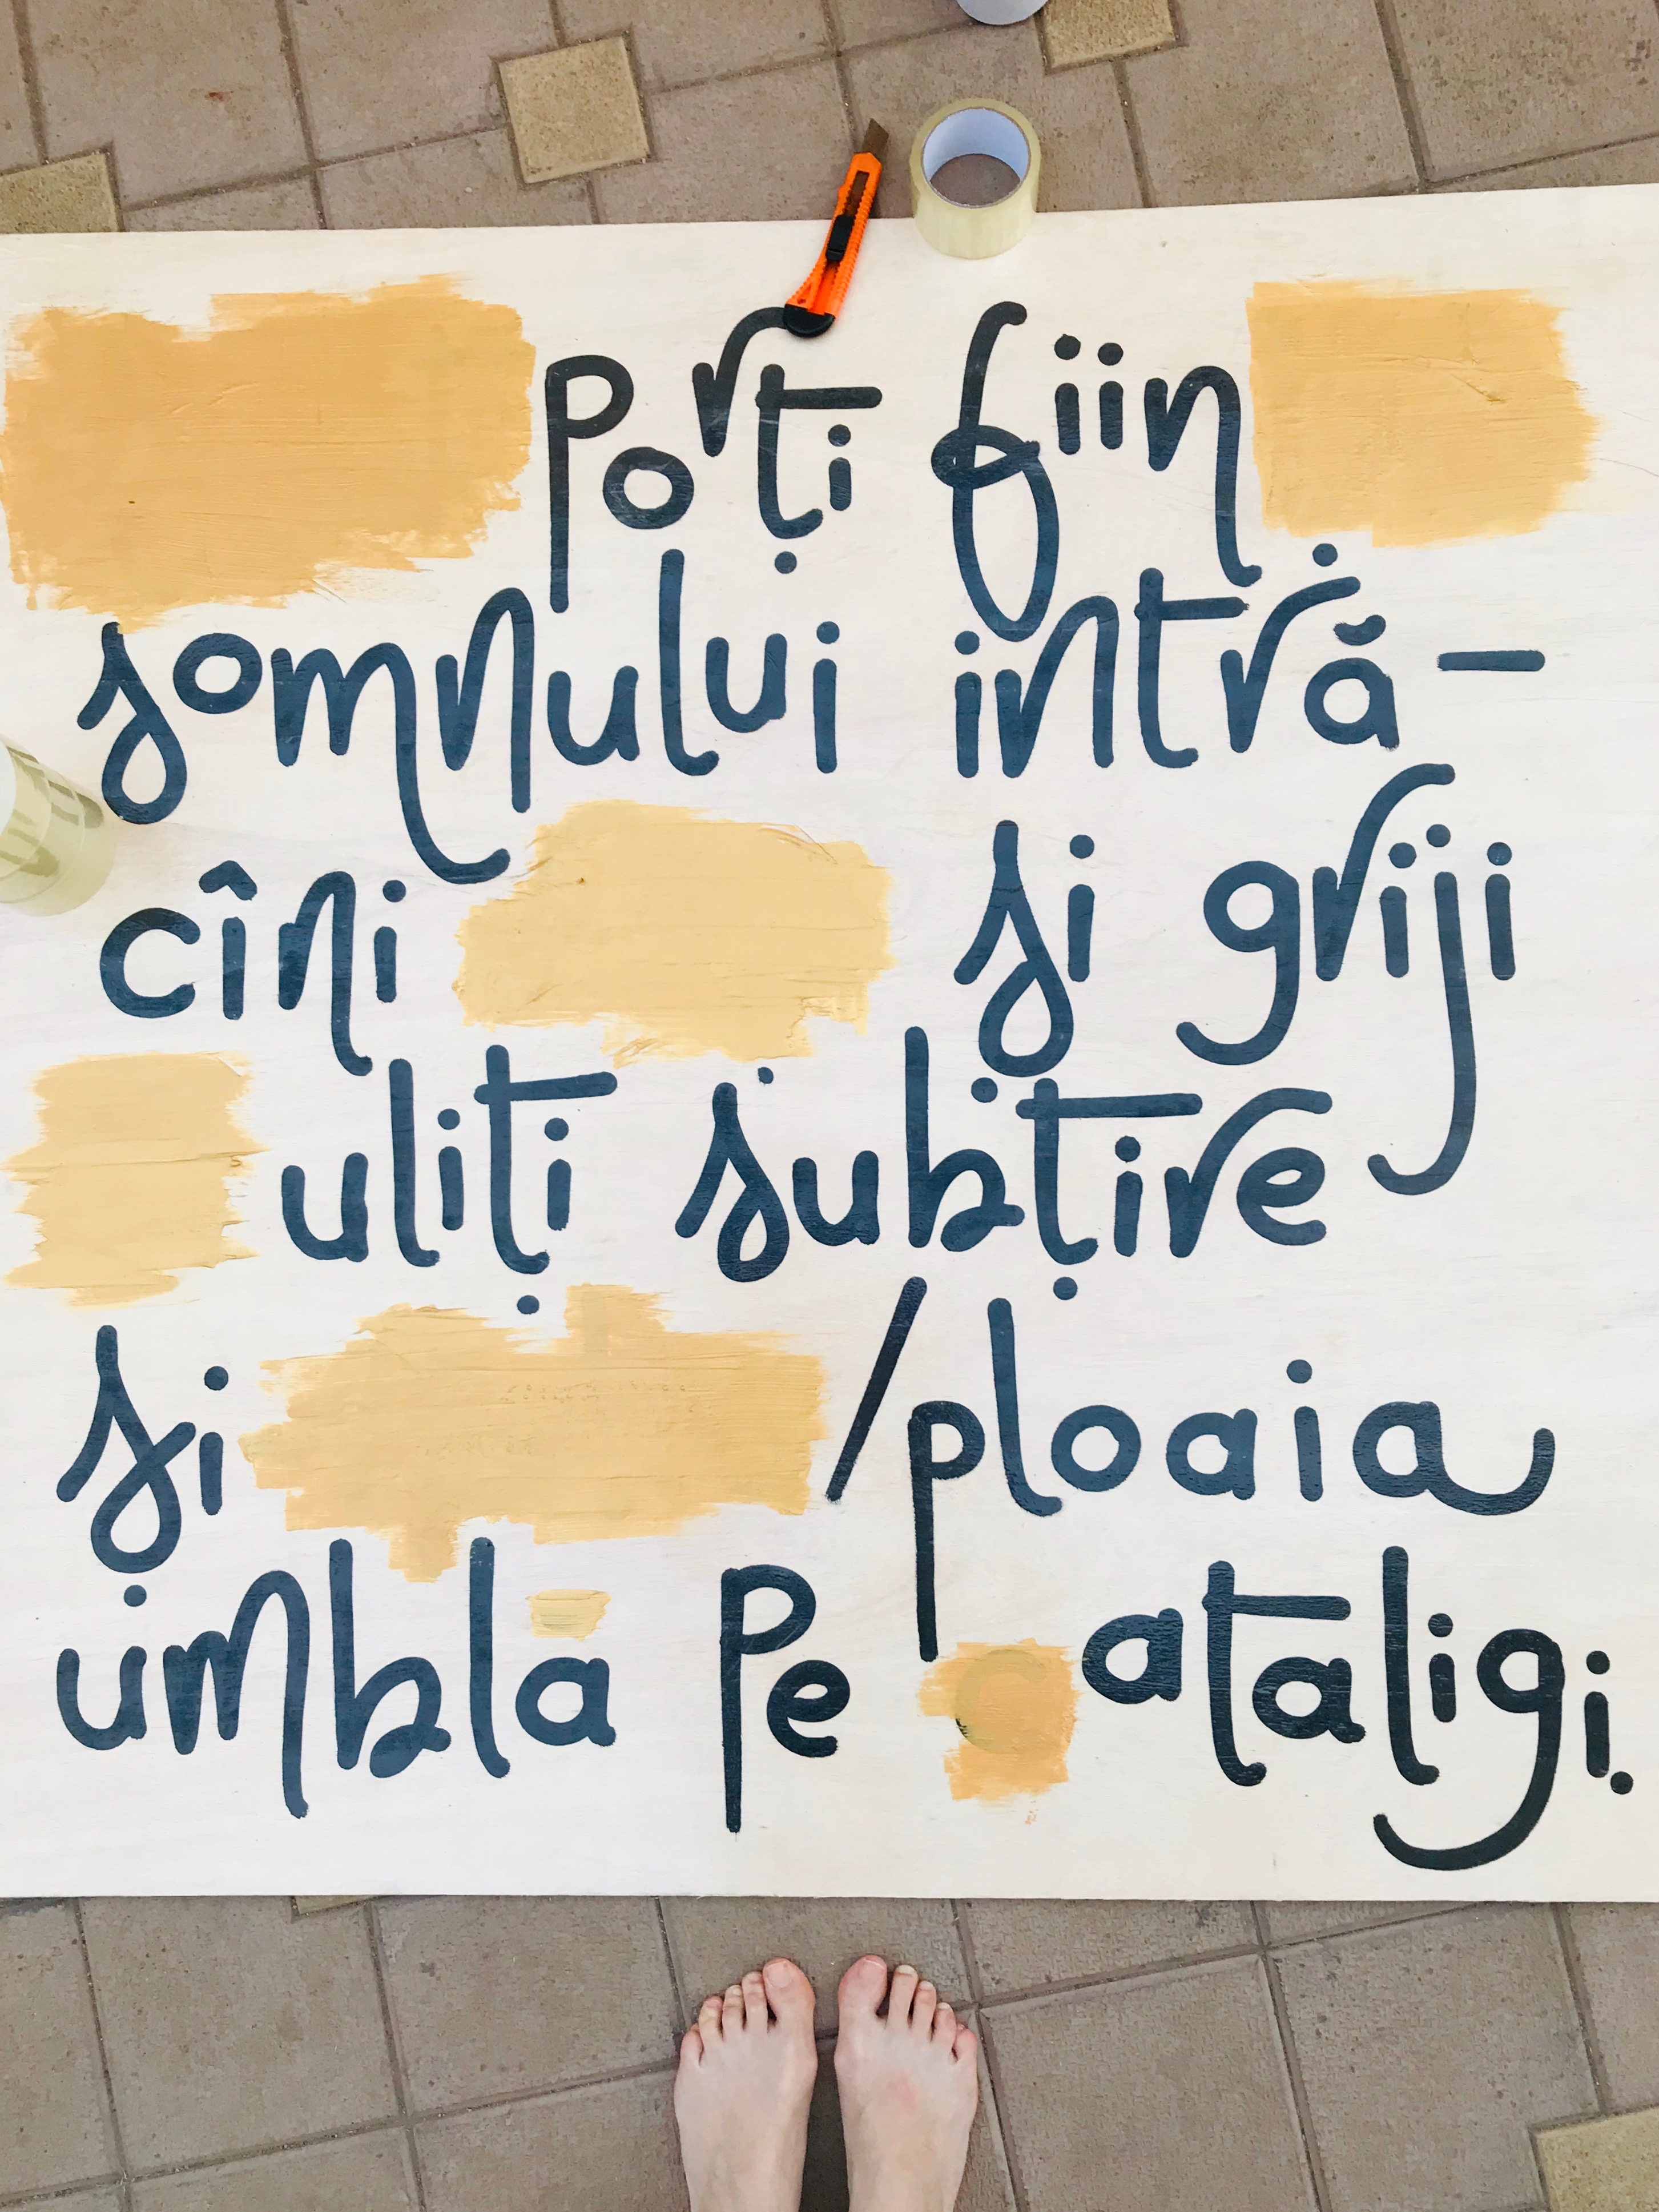 porți fiin
somnului intră-
cîni și griji
uliți subțire
și /ploaia
umbla pe cataligi.